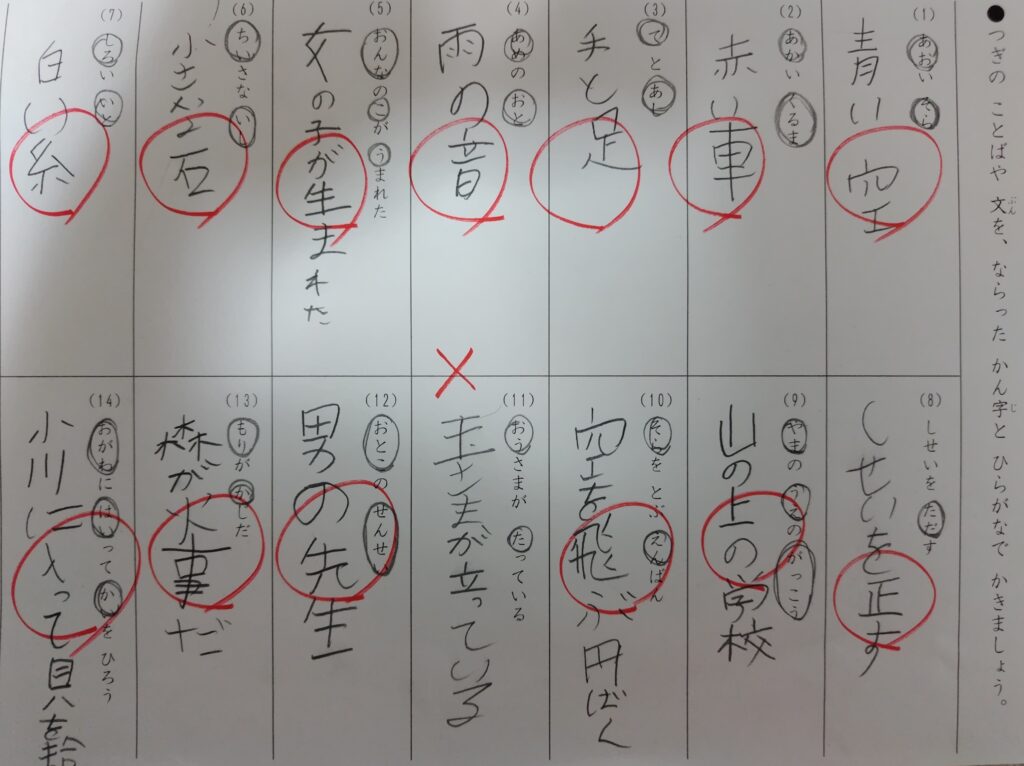 ●つぎの ことばや 文を、ならった かん字と ひらがなで かきましょう。
ぶん
じ
(1)
あおい そら
青い空
(2)
あかい くるま
赤い車
(3)
てと あし
手と足
(4)
あめの おと
雨の音
(5)
おんなのこが うまれた
女の子が生まれた
(6)
ちいさな いし
小さな石
(7)
しろい いと
白い糸
(8)
しせいを ただす
しせいを正す
(9)
やまの うえの がっこう
山の上の学校
(10)
そらを とぶ えんばん
空を飛ぶ円ばく
(11)
おうさまが たっている
王さ王が立っている
(12)
おとこの せんせい
男の先生
(13)
もりが かじだ
森が火事だ
(14)
おがわに はいって かいを ひろう
小川に入って貝を拾